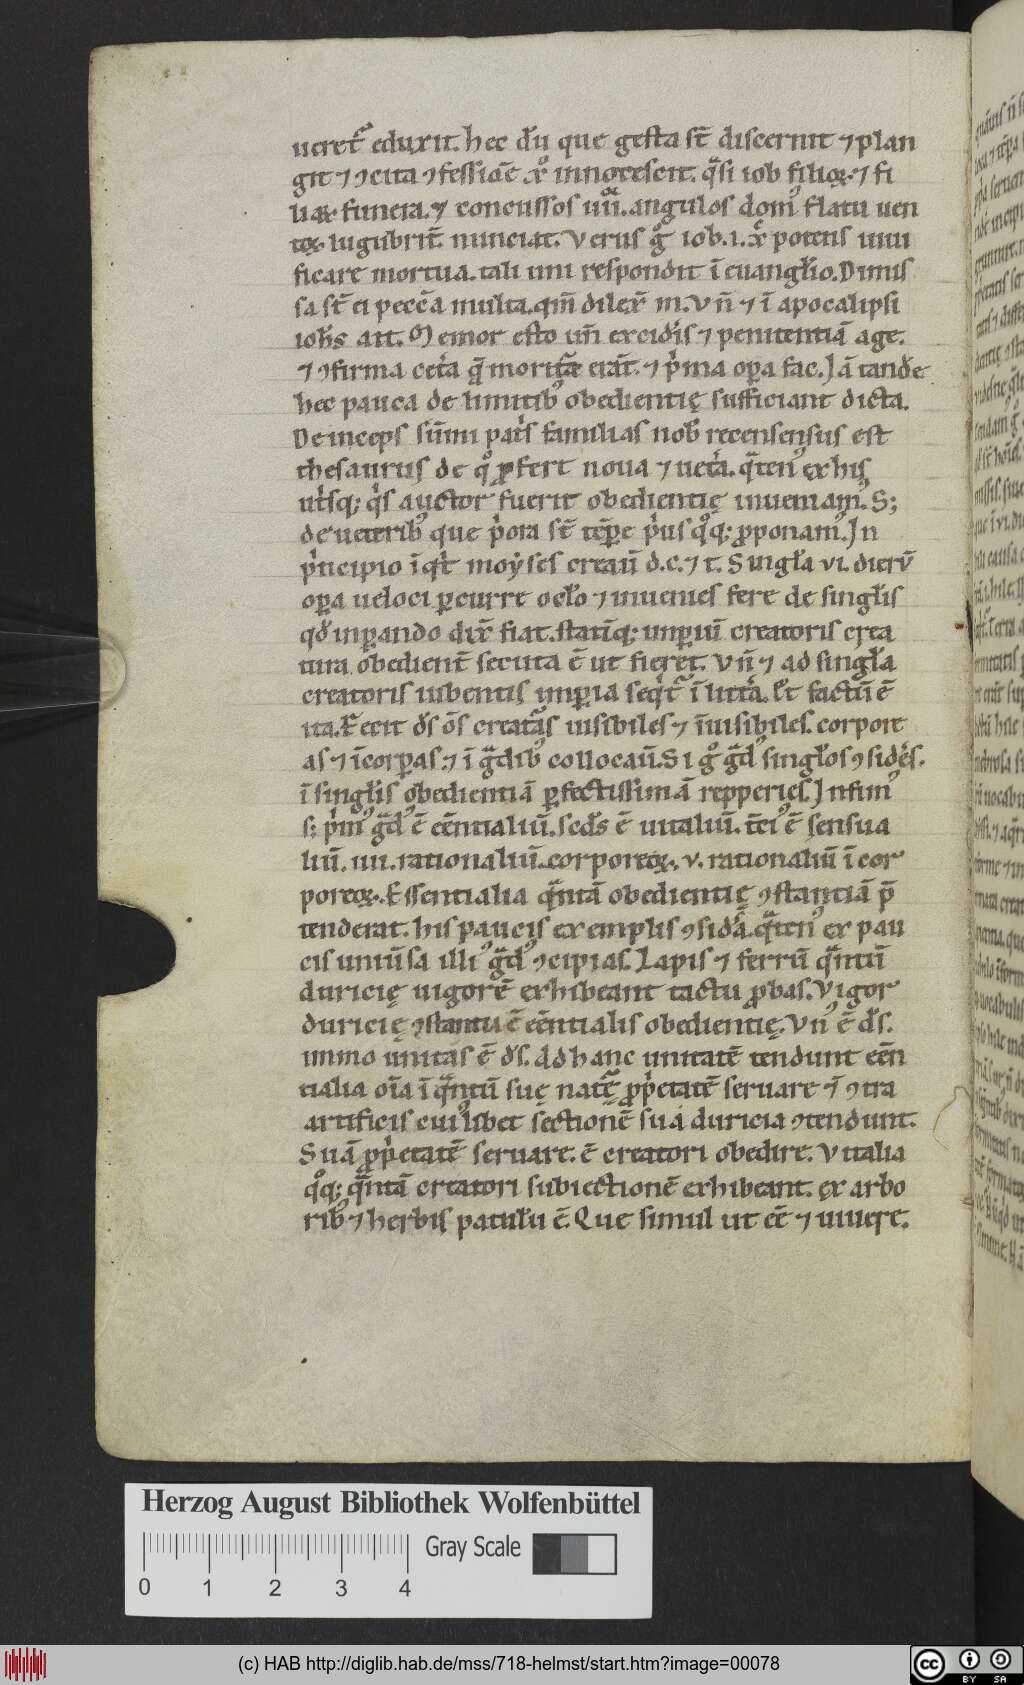 ueret᷑ eduxit. hec dũ que gesta st̄ discernit ⁊ plan
git ⁊ ꝯcita ꝯfessiōe xp̄o innotescit. qͣsi iob filioꝝ ⁊ fi
liaꝝ funera. ⁊ concussos iiii. angulos domꝰ flatu uen
toꝝ lugubrit̄ nunciat. Verus gͦ iob .i. xp̄c potens uiui
ficare mortua. tali uni respondit ī euangl̄io. Dimis
sa st̄ ei pecc̄a multa. qm̄ dilex̄ m. Vn̄ ⁊ ī apocalipsi
ioh̄s ait. Memor esto uñ excidīs ⁊ penitentiā age.
⁊ ꝯfirma cet̄a q̄ moritᷓa erāt. ⁊ pͥma oꝑa fac. Jā tandē
hec pauca de limitibꝰ obedientię sufficiant dicta.
Deinceps sūmi pat̄s familias nob̄ recensensus est
thesaurus de qͦ ꝓfert noua ⁊ uet̄a. qͣtenꝰ ex his
ut̄sq; qͥs auctor fuerit obedientię inueniamꝰ. S;
de ueteribꝰ que pͥora st̄ tēꝑe pͥus qͦq; ꝓponamꝰ. Jn
pͥncipio īqt̄ moẏses creaū d.c. ⁊ t. Singl̄a vi. dierū
oꝑa ueloci ꝑcurre ocl̄o ⁊ inuenies fere de singl̄is
qđ inꝑando dix̄ fiat. statīq; imꝑiū creatoris crea
tura obedient̄ secuta ē ut fieret. Vn̄ ⁊ ad singl̄a
creatoris iubentis imꝑia seqͥt᷑ ī litt̄a. Et factū ē
ita. Fecit dš ōs creatᷓas uisibiles ⁊ īuisibiles. corpore
as ⁊ īcorꝑas ⁊ ī gͣdibꝰ collocaū. Si gͦ gͣdꝰ singl̄os ꝯsidēs.
ī singl̄is obedientiā ꝑfectissimā repperies. Jnfimꝰ
s; pͥmꝰ gͣdꝰ ē eēntialiū. scd̄s ē uitaliū. t̄ciꝰ ē sensua
liū. iiii. rationaliū. corporeoꝝ. v. rationaliū īcor
poreoꝝ. Essentialia qͣntā obedientię ꝯstantiā p̄
tenderāt. his paucis exemplis ꝯsid̄a. qͣtenꝰ ex pau
cis uniūsa illiꝰ gͣdꝰ ꝯcipias. Lapis ⁊ ferrū qͣntū
duricię uigorē exhibeant tactu ꝓbas. Vigor
duricię ꝯstantii ē eēntialis obedientię. Vnꝰ ē dš.
immo unitas ē dš. Ad hanc unitatē tendunt eēn
tialia oīa ī qͣntū suę natᷓę ꝓpͥetatē seruare ⁊ ꝯtra
artificis cuiꝰlibet sectionē sua duricia ꝯtendunt.
Suā ꝓpͥetatē seruare. ē creatori obedire. Vitalia
qͦq; qͣntā creatori subiectionē exhibeant. ex arbo
ribꝰ ⁊ herbis patulū ē. Que simul ut eē ⁊ uiuere.
Herzog August Bibliothek Wolfenbüttel
Gray Scale
0 1 2 3 4
(c) HAB http://diglib.hab.de/mss/718-helmst/start.htm?image=00078
cc BY SA